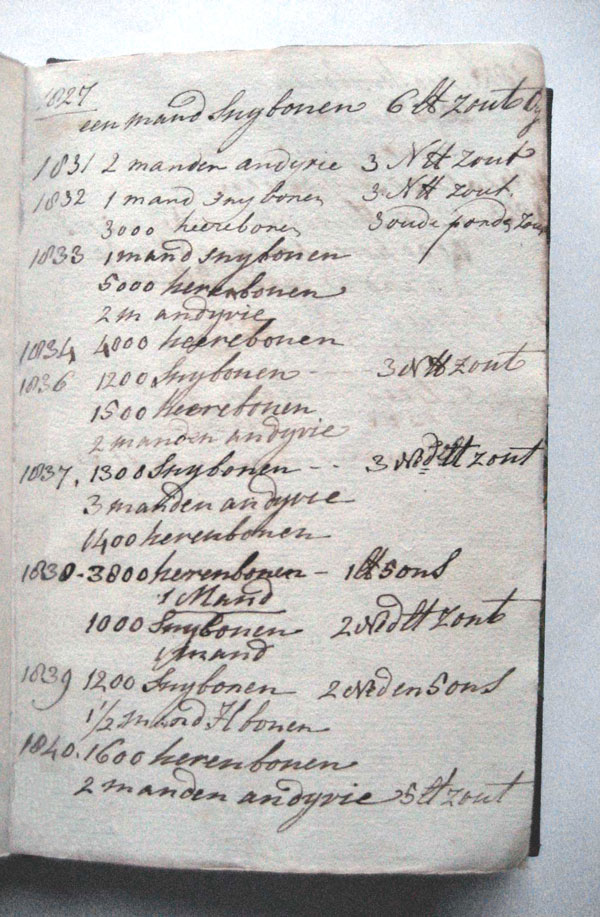 1827
een mand snybonen 6 ℔ zout
1831 2 manden andyvie 3 N ℔ zout
1832 1 mand snybonen 3 N ℔ zout.
3000 heerebonen 3 oude ponden zout
1833 1 mand snybonen
5000 herenbonen
2 m andyvie
1834 4000 heerebonen
1836 1200 snybonen - 3 N ℔ zout
1500 heerebonen
2 manden andyvie
1837. 1300 snybonen - - 3 Ned ℔ zout
3 manden andyvie
1400 herenbonen
1838 - 3800 herenbonen - 1 ℔ 5 ons
1 Mand
1000 Snybonen 2 Ned ℔ zout
1 mand
1839 1200 Snybonen 2 Ned en 5 ons
1 1/2 mand H bonen
1840. 1600 herenbonen
2 manden andyvie 5 ℔ zout